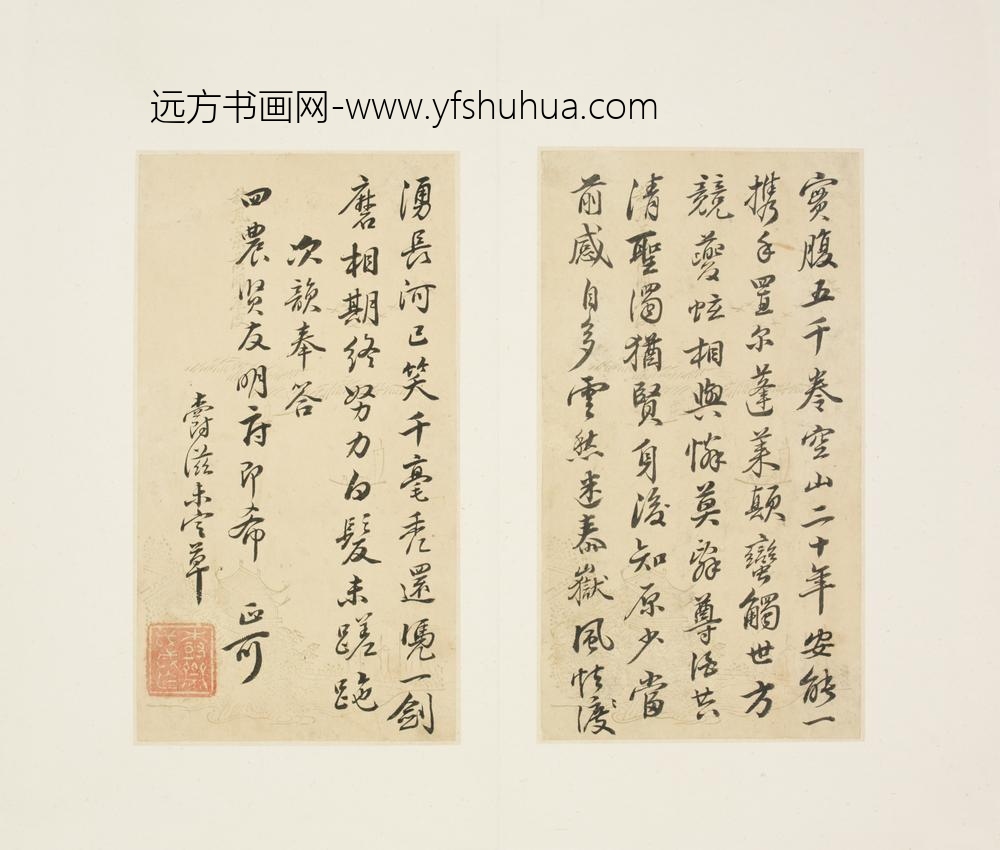 远方书画网-www.yfshuhua.com
實腹五千卷空山二十年安能一
携手置尔蓬莱顛蠻觸世方
競夔蚿相與憐莫辞尊酒共
清聖濁猶賢身後知原少當
前感自多雲然迷泰嶽風快渡
湧長河已笑千毫秃還凭一劍
磨相期终努力白髮未蹉跎
次韻奉答
四農贤友明府即希 正可
爵滋未定草